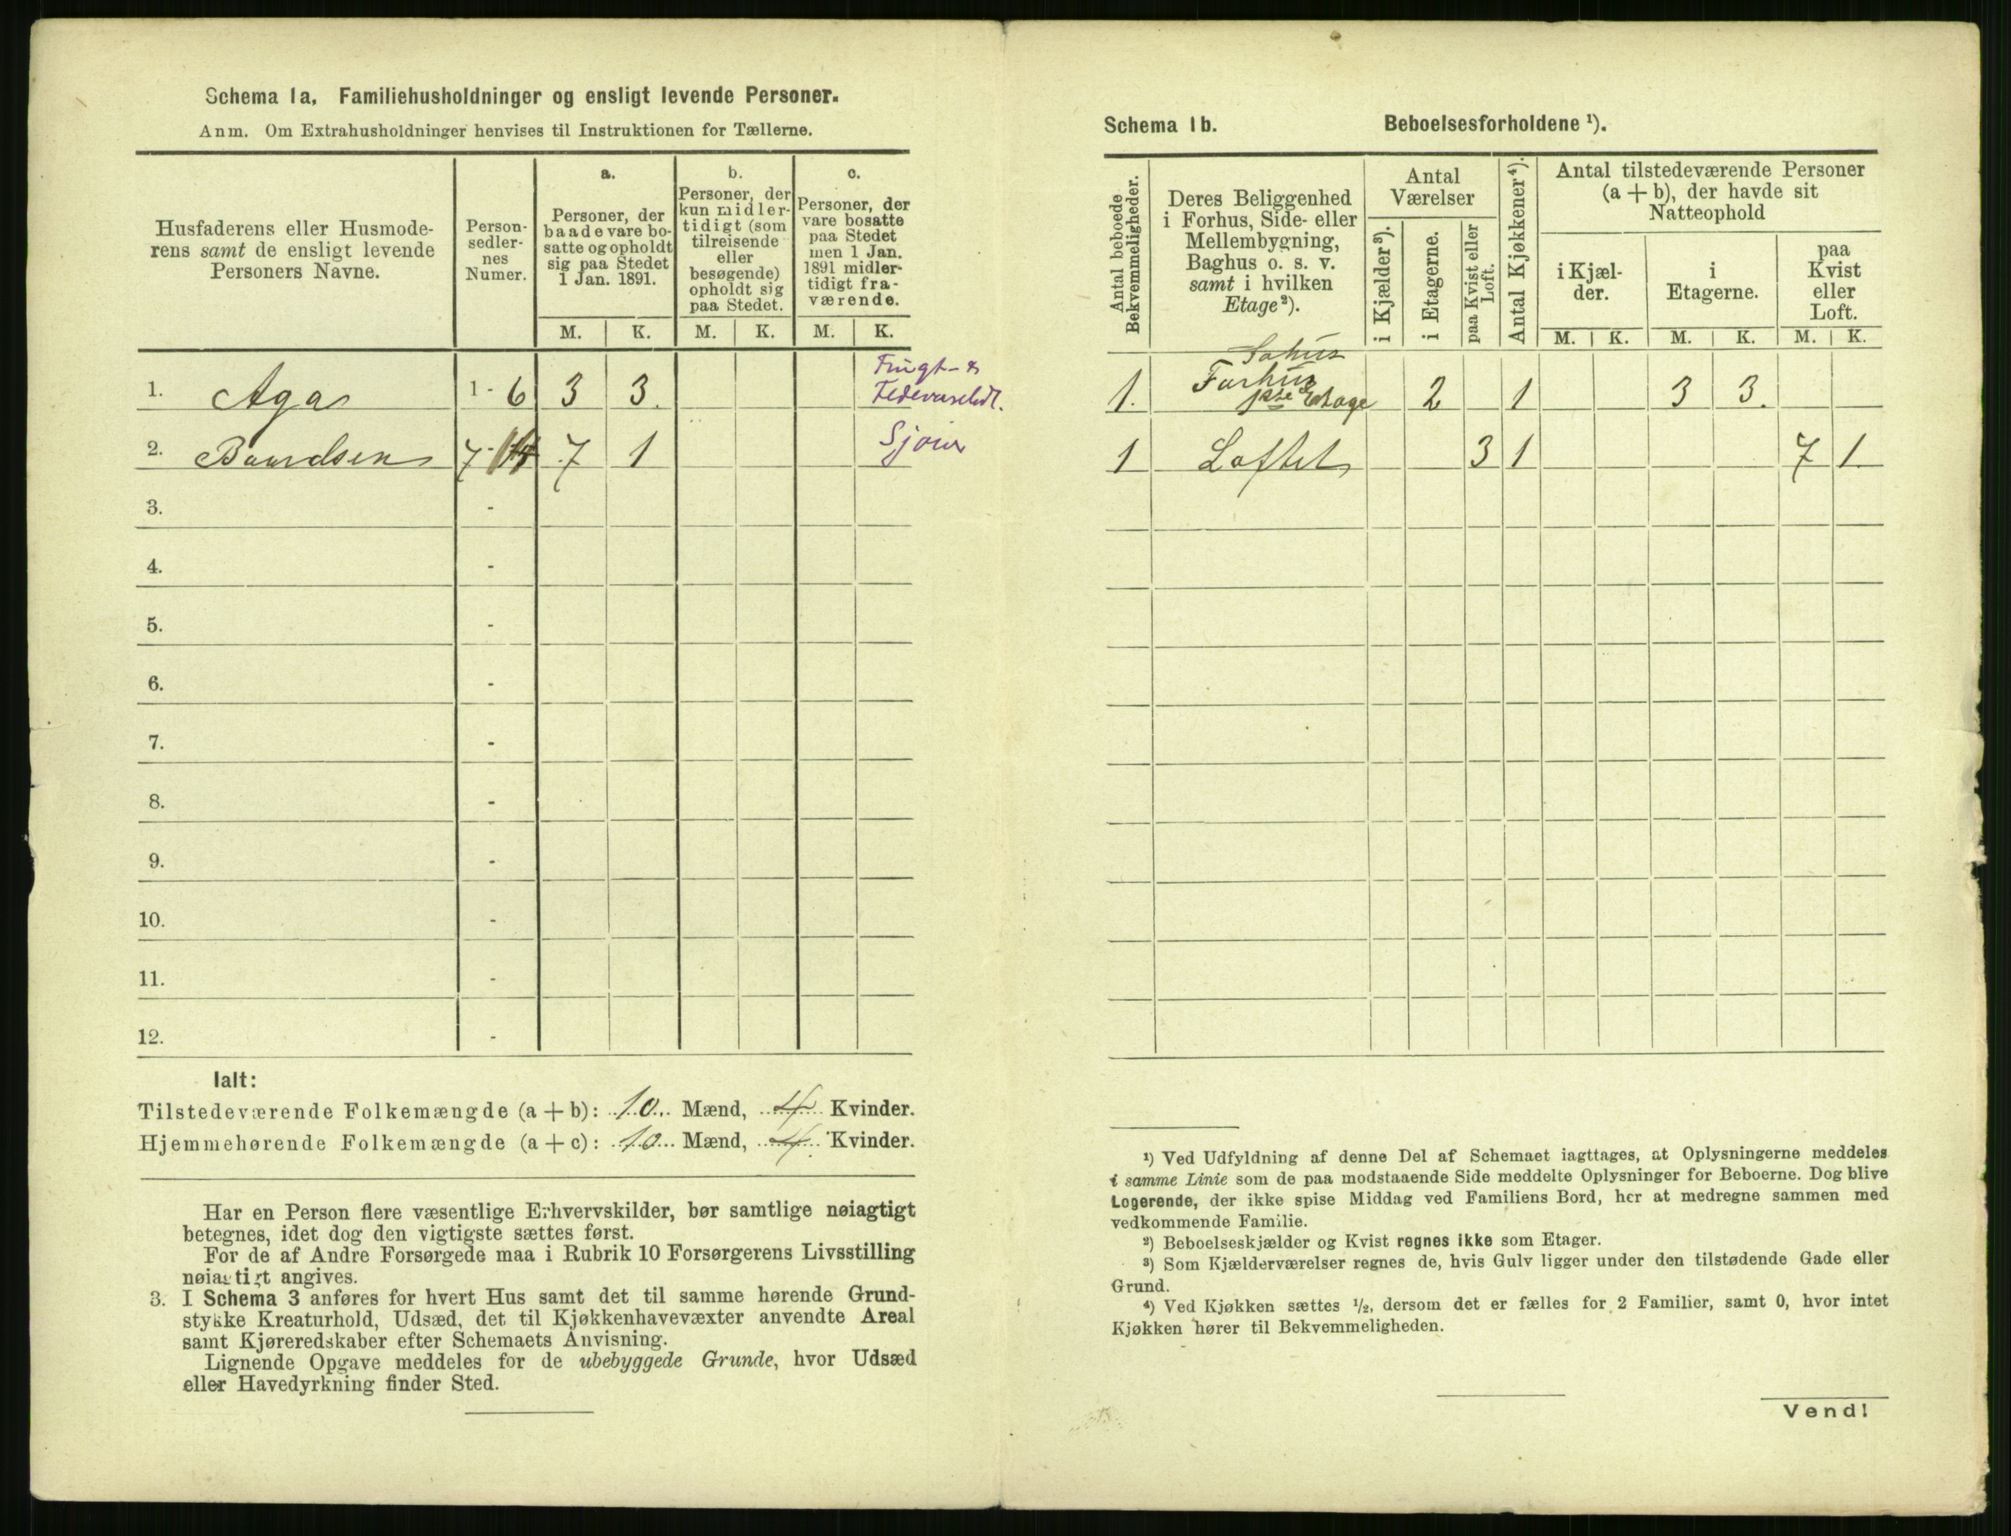 Schema 1a. Familiehusholdninger og ensligt levende Personer.
Anm. Om Extrahusholdninger henvises til Instruktionen for Tællerne.
Husfaderens eller Husmode-
rens samt de ensligt levende
Personers Navne.
Person-
sedler-
nes
Numer.
a.
Personer, der
baade vare bo-
satte og opholdt
sig paa Stedet
1 Jan. 1891.
b.
Personer, der
kun midler-
tidigt (som
tilreisende
eller
besøgende)
opholdt sig
paa Stedet.
c.
Personer, der
vare bosatte
paa Stedet
men 1 Jan.
1891 midler-
tidigt fra-
værende.
M. K. M. K. M. K.
1. Aga 1-6 3 3.
2. Baardsen 7-14 7 1
3. -
4. -
5. -
6. -
7. -
8. -
9. -
10. -
11. -
12. -
Ialt:
Tilstedeværende Folkemængde (a + b): 10 Mænd, 4 Kvinder.
Hjemmehørende Folkemængde (a + c): 10 Mænd, 4 Kvinder.
Har en Person flere væsentlige Erhvervskilder, bør samtlige nøiagtigt
betegnes, idet dog den vigtigste sættes først.
For de af Andre Forsørgede maa i Rubrik 10 Forsørgerens Livsstilling
nøiagtigt angives.
3. I Schema 3 anføres for hvert Hus samt det til samme hørende Grund-
stykke Kreaturhold, Udsæd, det til Kjøkkenhavevæxter anvendte Areal
samt Kjøreredskaber efter Schemaets Anvisning.
Lignende Opgave meddeles for de ubebyggede Grunde, hvor Udsæd
eller Havedyrkning finder Sted.
Schema 1b. Beboelsesforholdene ¹).
Antal beboede
Bekvemmeligheder.
Deres Beliggenhed
i Forhus, Side- eller
Mellembygning,
Baghus o. s. v.
samt i hvilken
Etage²).
Antal
Værelser
i Kjælder³).
i Etagerne.
paa Kvist eller
Loft.
Antal Kjøkkener⁴).
Antal tilstedeværende Personer
(a + b), der havde sit
Natteophold
i Kjæl-
der.
i
Etagerne.
paa
Kvist
eller
Loft.
M. K. M. K. M. K.
1. Forhus
1ste Etage 2 1 3 3.
1 Loftet 3 1 7 1
¹) Ved Udfyldning af denne Del af Schemaet iagttages, at Oplysningerne meddeles
i samme Linie som de paa modstaaende Side meddelte Oplysninger for Beboerne. Dog blive
Logerende, der ikke spise Middag ved Familiens Bord, her at medregne sammen med
vedkommende Familie.
²) Beboelseskjælder og Kvist regnes ikke som Etager.
³) Som Kjælderværelser regnes de, hvis Gulv ligger under den tilstødende Gade eller
Grund.
⁴) Ved Kjøkken sættes ½, dersom det er fælles for 2 Familier, samt 0, hvor intet
Kjøkken hører til Bekvemmeligheden.
Vend!